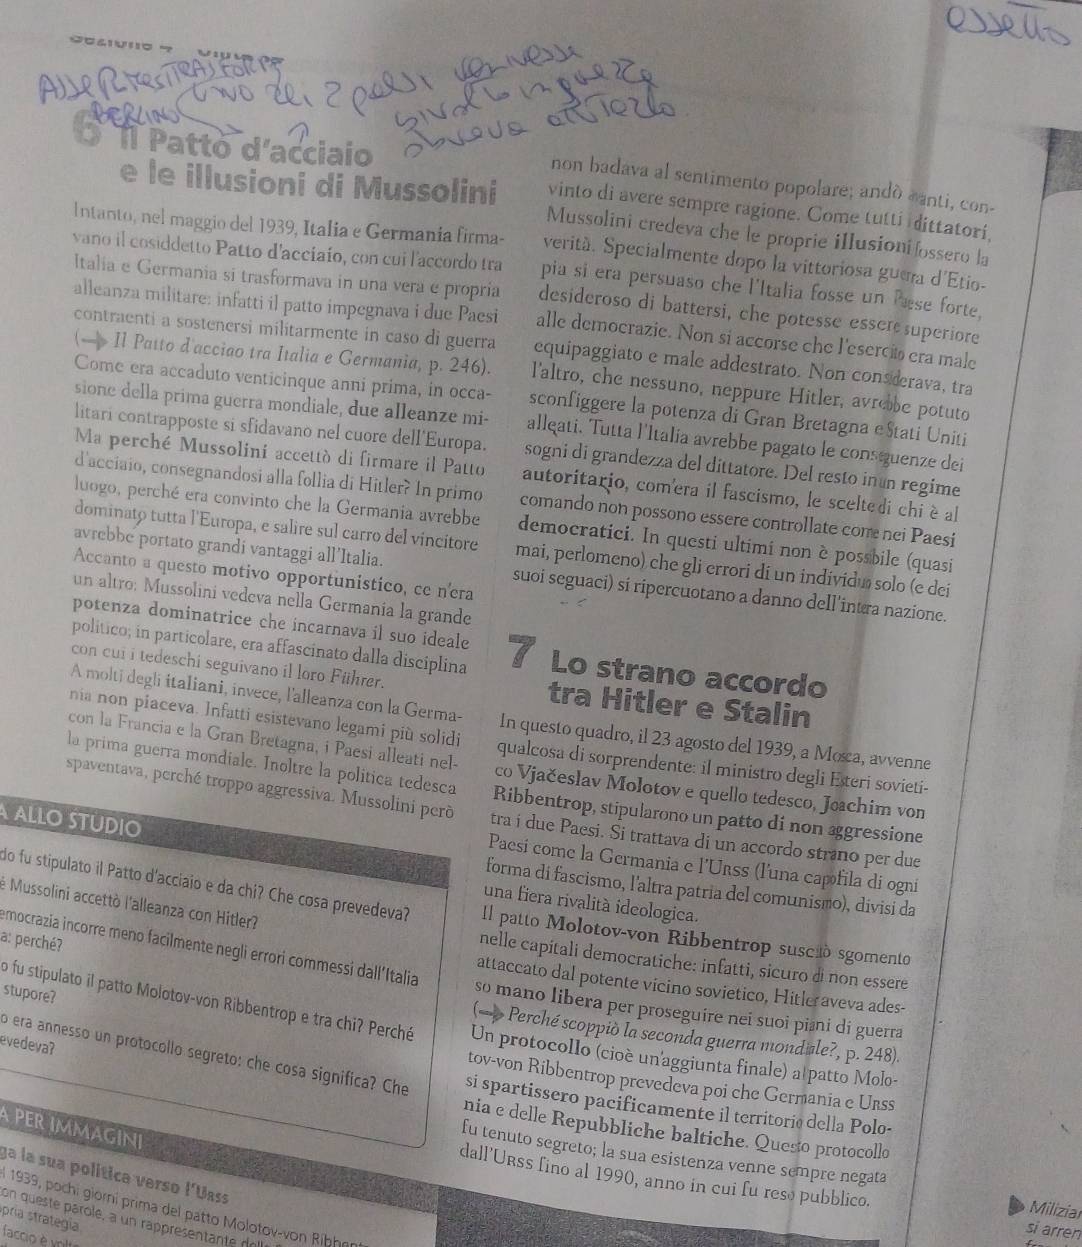 essetto
6 Il Patto d'acciaio
e le illusioni di Mussolini
Intanto, nel maggio del 1939, Italia e Germania firma-
vano il cosiddetto Patto d'acciaio, con cui l'accordo tra
Italia e Germania si trasformava in una vera e propria
alleanza militare: infatti il patto impegnava i due Paesi
contraenti a sostenersi militarmente in caso di guerra
( Il Patto d'acciao tra Italia e Germania, p. 246).
Come era accaduto venticinque anni prima, in occa-
sione della prima guerra mondiale, due alleanze mi-
litari contrapposte si sfidavano nel cuore dell'Europa.
Ma perché Mussolini accettò di firmare il Patto
d'acciaio, consegnandosi alla follia di Hitler? In primo
luogo, perché era convinto che la Germania avrebbe
dominato tutta l'Europa, e salire sul carro del vincitore
avrebbe portato grandi vantaggi all'Italia.
Accanto a questo motivo opportunistico, ce n'era
un altro: Mussolini vedeva nella Germania la grande
potenza dominatrice che incarnava il suo ideale
politico; in particolare, era affascinato dalla disciplina
con cui i tedeschi seguivano il loro Führer.
A molti degli italiani, invece, l'alleanza con la Germa-
nia non piaceva. Infatti esistevano legami più solidi
con la Francia e la Gran Bretagna, i Paesi alleati nel-
la prima guerra mondiale. Inoltre la politica tedesca
spaventava, perché troppo aggressiva. Mussolini però
non badava al sentimento popolare; andò avanti, con-
vinto di avere sempre ragione. Come tutti i dittatori,
Mussolini credeva che le proprie illusioni fossero la
verità. Specialmente dopo la vittoriosa guerra d'Etio-
pia si era persuaso che l'Italia fosse un Paese forte,
desideroso di battersi, che potesse essere superiore
alle democrazie. Non si accorse che l'esercito era male
equipaggiato e male addestrato. Non considerava, tra
l'altro, che nessuno, neppure Hitler, avrebbe potuto
sconfiggere la potenza di Gran Bretagna e Stati Uniti
alleati. Tutta l'Italia avrebbe pagato le conseguenze dei
sogni di grandezza del dittatore. Del resto in un regime
autoritario, com'era il fascismo, le scelte di chi è al
comando non possono essere controllate come nei Paesi
democratici. In questi ultimi non è possibile (quasi
mai, perlomeno) che gli errori di un individuo solo (e dei
suoi seguaci) si ripercuotano a danno dell'intera nazione.
7 Lo strano accordo
tra Hitler e Stalin
In questo quadro, il 23 agosto del 1939, a Mosca, avvenne
qualcosa di sorprendente: il ministro degli Esteri sovieti-
co Vjačeslav Molotov e quello tedesco, Joachim von
Ribbentrop, stipularono un patto di non aggressione
tra i due Paesi. Si trattava di un accordo strano per due
Paesi come la Germania e l'URSS (l'una capofila di ogni
forma di fascismo, l'altra patria del comunismo), divisi da
una fiera rivalità ideologica.
Il patto Molotov-von Ribbentrop suscitò sgomento
nelle capitali democratiche: infatti, sicuro di non essere
attaccato dal potente vicino sovietico, Hitler aveva ades-
so mano libera per proseguire nei suoi piani di guerra
( Perché scoppiò la seconda guerra mondiale?, p. 248).
Un protocollo (cioè un'aggiunta finale) al patto Molo-
tov-von Ribbentrop prevedeva poi che Germania e URSS
si spartissero pacificamente il territorio della Polo-
nia e delle Repubbliche baltiche. Questo protocollo
fu tenuto segreto; la sua esistenza venne sempre negata
dall'URSS fino al 1990, anno in cui fu reso pubblico.
A ALLO STUDIO
do fu stipulato il Patto d'acciaio e da chi? Che cosa prevedeva?
é Mussolini accettò l'alleanza con Hitler?
emocrazia incorre meno facilmente negli errori commessi dall'Italia
a: perché?
o fu stipulato il patto Molotov-von Ribbentrop e tra chi? Perché
stupore?
o era annesso un protocollo segreto: che cosa significa? Che
evedeva?
A PER IMMAGINI
ga la sua politica verso l'URSS
l 1939, pochi giorni prima del patto Molotov-von Ribben
on queste parole, a un rappresentante
pria strategia
faccio è
Miliziar
si arren